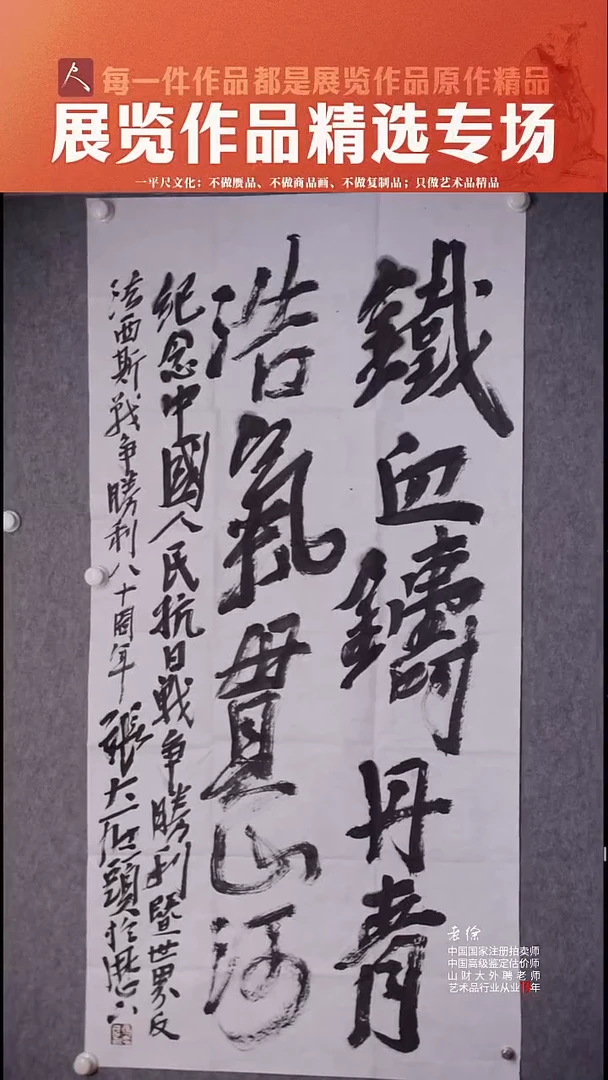 每一件作品都是展览作品原作精品
展览作品精选专场
一平尺文化；不做赝品、不做商品画、不做复制品；只做艺术品精品
鐵血鑄丹青
浩氣貫山河
紀念中國人民抗日戰争勝利暨世界反
法西斯戰争勝利八十周年 張大石頭於歷下
老徐
中国国家注册拍卖师
中国高级鉴定估价师
山财大外聘老师
艺术品行业从业年